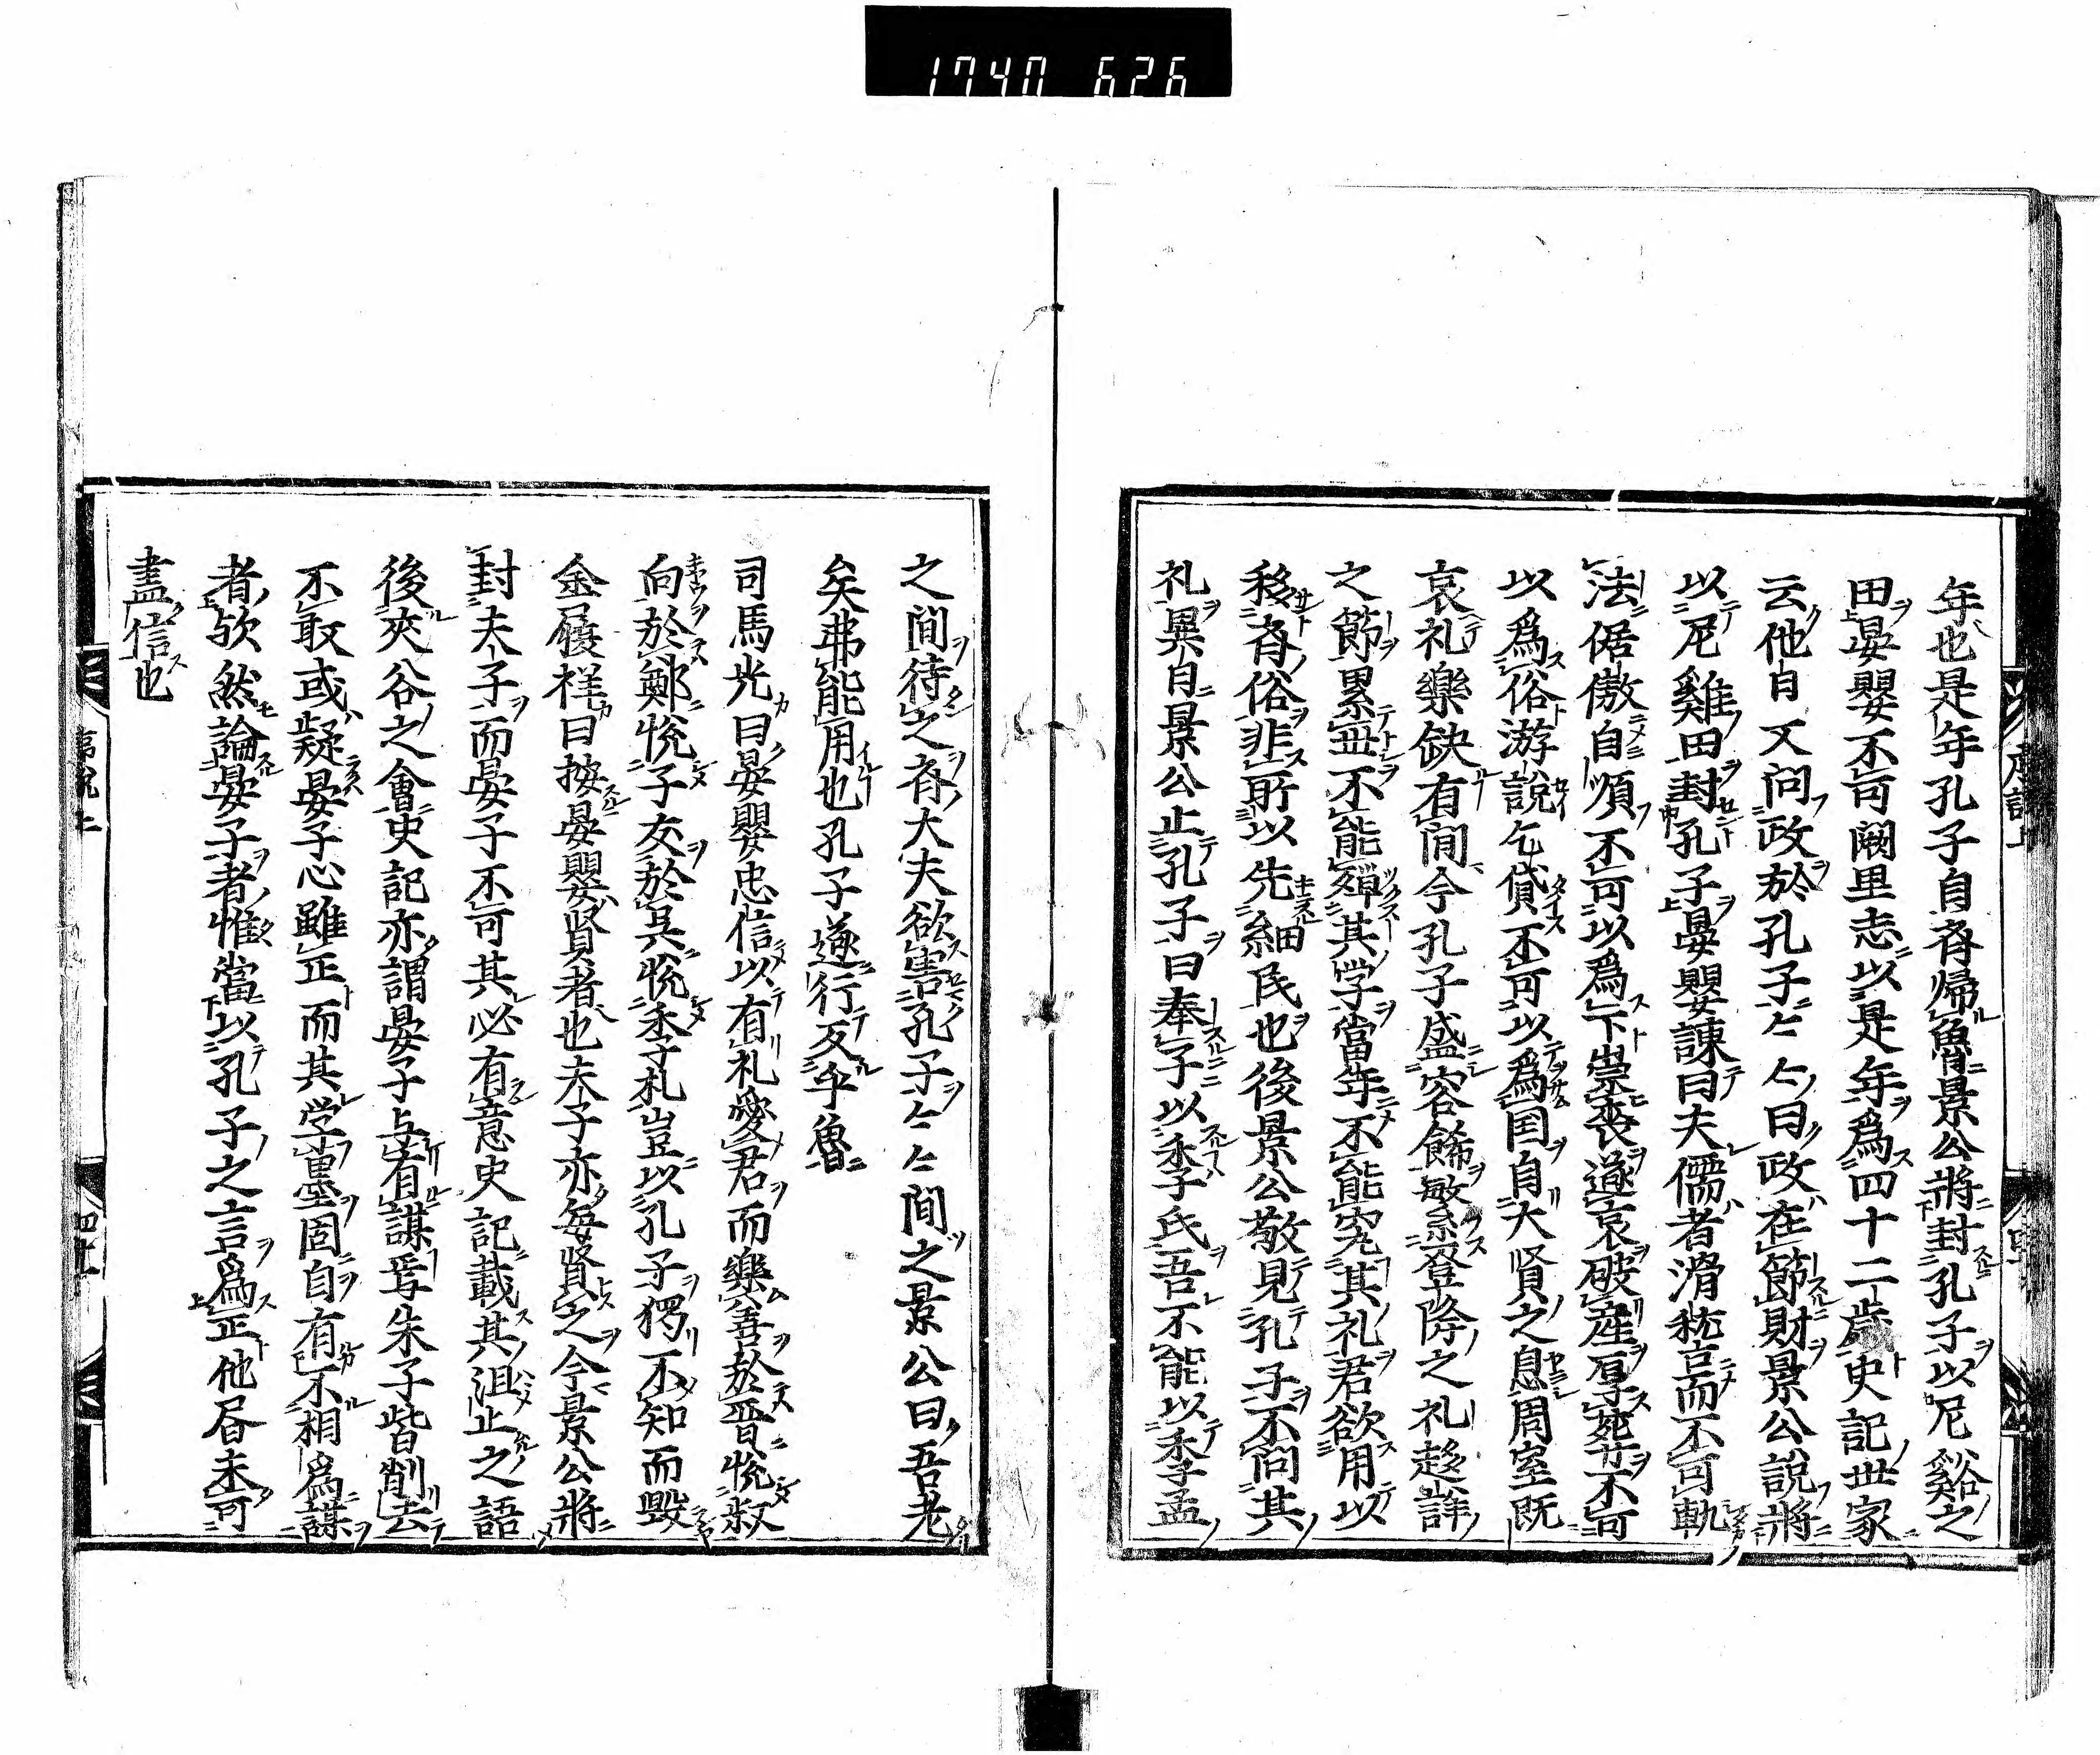 1740 626
年也是年孔子自斉帰魯景公將封孔子以尼谿之
田晏嬰不可闕里志以是年爲四十二歲史記世家
云他日又问政於孔子〻〻曰政在節財景公說將
以尼谿田封孔子晏嬰諫曰夫儒者滑稽而不可軌
法倨傲自順不可以爲下崇喪遂哀破産厚葬不可
以爲俗游說乞貸不可以爲国自大賢之息周室既
衰礼樂缺有间今孔子盛容飾繁登降之礼趍詳
之節累世不能殫其学當年不能究其礼君欲用以
移斉俗非所以先細民也後景公敬見孔子不问其
礼異日景公止孔子曰奉子以季氏吾不能以季孟
之间待之斉大夫欲害孔子〻〻间之景公曰吾老
矣弗能用也孔子遂行反乎魯
司馬光曰晏嬰忠信以有礼愛君而樂善於晋悅叔
向於鄭悅子皮於吴悅季札豈以孔子獨不知而毀
金履祥曰按晏嬰賢者也夫子亦每賢之今景公將
封夫子而晏子不可其必有意史記載其沮止之語
後夾谷之會史記亦謂晏子与有謀焉朱子皆削去
不取或疑晏子心雖正而其学墨固自有不相爲謀
者歟然論晏子者惟當以孔子之言爲正他㫺未可
盡信也